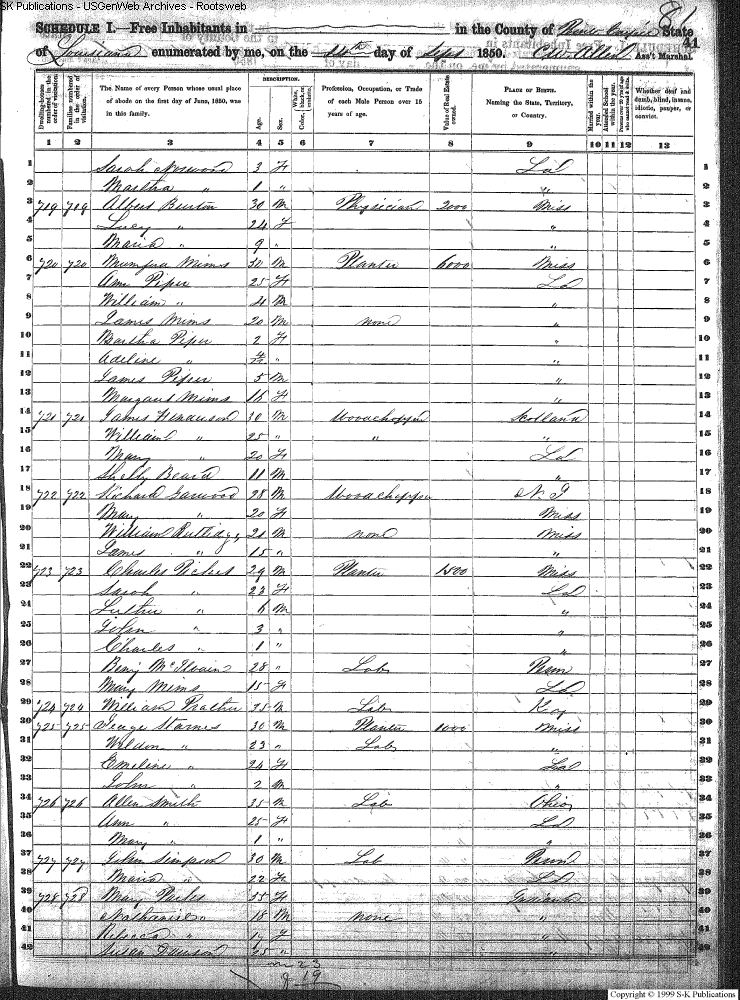 SK Publications - USGenWeb Archives - Rootsweb
81
SCHEDULE I.—Free Inhabitants in in the County of State
41
of Louisiana enumerated by me, on the day of Sept 1850. Ass't Marshal.
Dwelling-houses numbered in the order of visitation.
Families numbered in the order of visitation.
The Name of every Person whose usual place of abode on the first day of June, 1850, was in this family.
DESCRIPTION.
Age.
Sex.
Color, White, black, or mulatto.
Profession, Occupation, or Trade of each Male Person over 15 years of age.
Value of Real Estate owned.
PLACE OF BIRTH. Naming the State, Territory, or Country.
Married within the year.
Attended School within the year.
Persons over 20 y'rs of age who cannot read & write.
Whether deaf and dumb, blind, insane, idiotic, pauper, or convict.
1 2 3 4 5 6 7 8 9 10 11 12 13
1 Sarah Norwood 3 F La 1
2 Martha " 1 " " 2
3 719 719 Alfred Burton 30 M Physician 2000 Miss 3
4 Lucy " 24 F " 4
5 Maria " 9 " " 5
6 720 720 Mims 30 M Planter 6000 Miss 6
7 Ann Piper 25 F La 7
8 William " 4 M " 8
9 James Mims 20 M none " 9
10 Martha Piper 2 F " 10
11 Adeline " " " 11
12 James Piper 5 M " 12
13 Margaret Mims 16 F " 13
14 721 721 James 30 M Woodchopper Scotland 14
15 William " 25 " " " 15
16 Mary " 20 F La 16
17 Shelly Beard 11 M " 17
18 722 722 Richard Garwood 28 M Woodchopper N. J 18
19 Mary " 20 F Miss 19
20 William Rutledge 21 M none Miss 20
21 James " 15 " " 21
22 723 723 Charles Picket 29 M Planter 1500 Miss 22
23 Sarah " 23 F La 23
24 Luther " 6 M " 24
25 John " 3 " " 25
26 Charles " 1 " " 26
27 Benj McIlvain 28 " Lab Penn 27
28 Mary Mims 15 F La 28
29 724 724 William Prather 35 M Lab Ky 29
30 725 725 George Starnes 30 M Planter 1000 Miss 30
31 Weldon " 23 " Lab " 31
32 Emeline " 24 F La 32
33 John " 2 M " 33
34 726 726 Allen Smith 35 M Lab Ohio 34
35 Ann " 25 F La 35
36 Mary " 1 " " 36
37 727 727 John Simpson 30 M Lab Penn 37
38 Maria " 22 F La 38
39 728 728 Mary 55 F 39
40 Nathaniel " 18 M none " 40
41 Rebecca " F " 41
42 Susan 25 " " 42
m 23
f 19
Copyright © 1999 S-K Publications